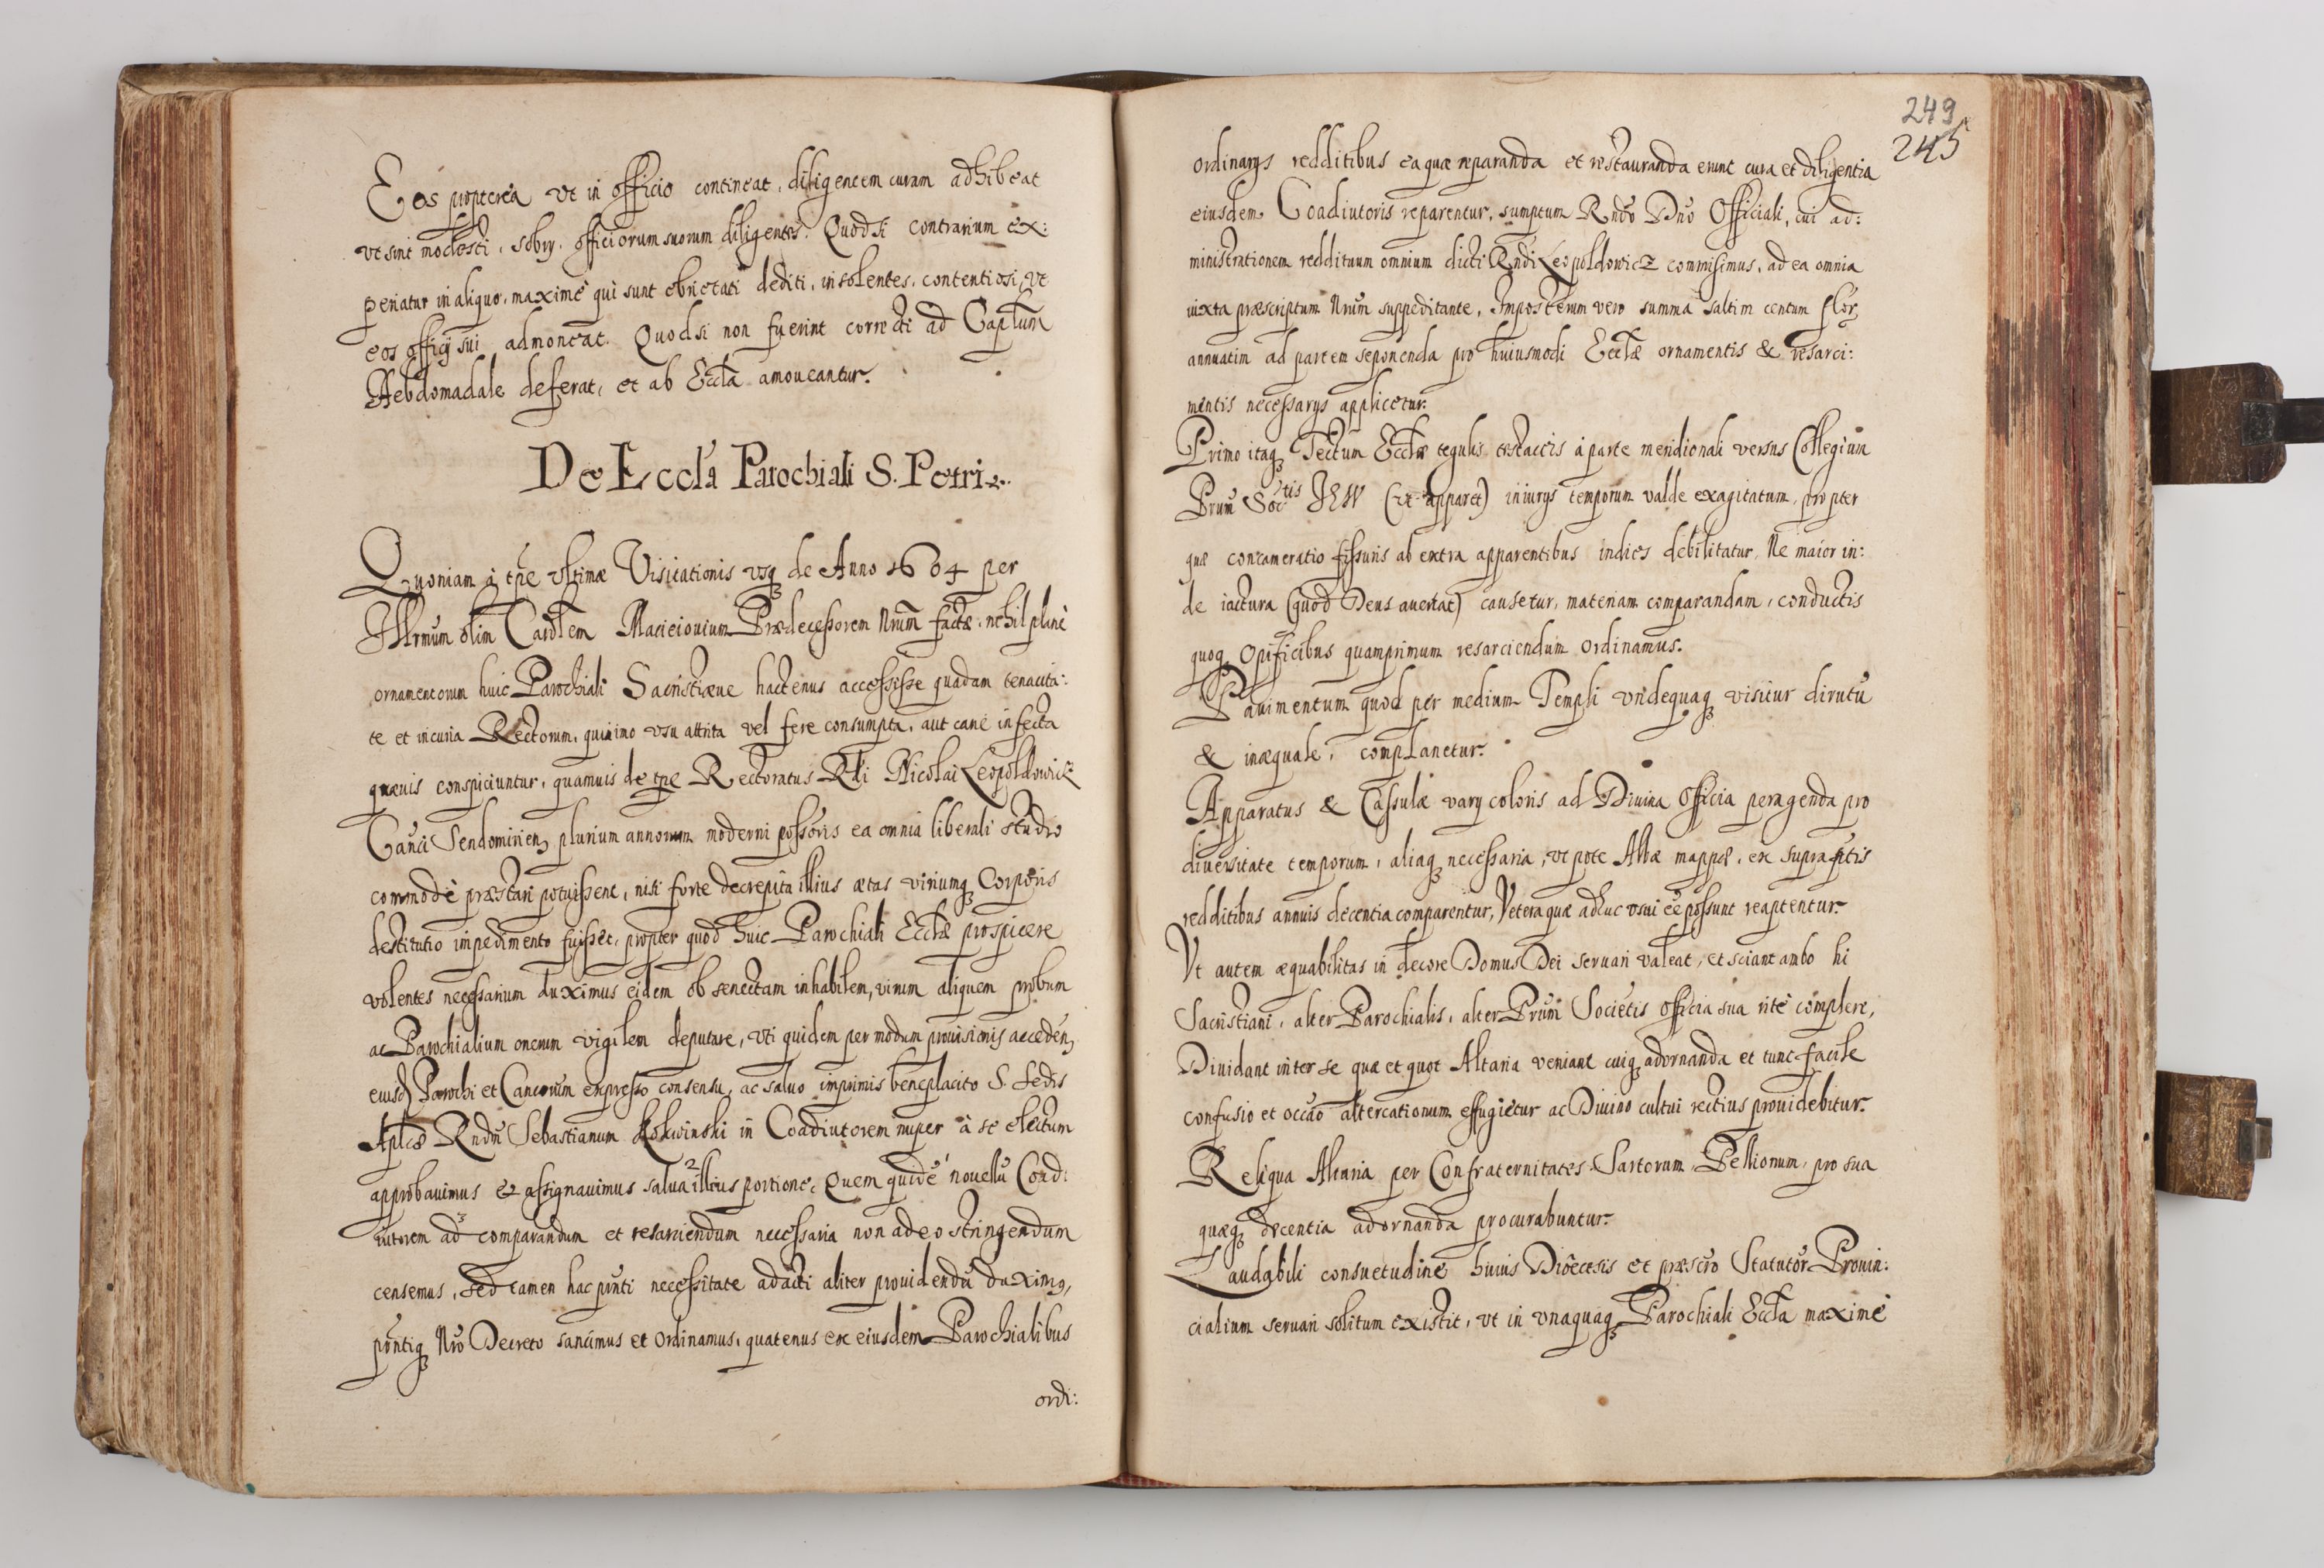 Eos propterea vt in officio contineat, diligentem curam adhibeat
vt sint modesti, sobrij, officiorum suorum diligentes. Quod si contrarium ex:
periatur in aliquo, maximè qui sunt ebrietati dediti, insolentes, contentiosi, vt
eos officij sui admoneat. Quod si non fuerint correcti ad Caplum
Hebdomadale deferat, et ab Eccla amoueantur.
De Eccla Parochiali S. Petri
Quoniam à tpe vltimæ Visitationis vsq de Anno 1604 per
Illrmum olim Cardlem Macieiouium Prædecessorem Nrum factæ, nihil planè
ornamentorum huic Parochiali Sacristiæue hactenus accessisse quadam tenacita:
te et incuria Rectorum, quinimo vsu attrita vel fere consumpta, aut cariè infecta
quæuis conspiciuntur, quamuis de tpe Rectoratus Rdi Nicolai Leopoldowicz
Canci Sendomirien, plurium annorum moderni possoris ea omnia liberali studio
commodè præstari potuissent, nisi forte decrepita illius ætas viriumq Corporis
destitutio impedimento fuisset, propter quod huic Parochiali Ecclæ prospicere
volentes necessarium duximus eidem ob senectam inhabilem, virum aliquem probum
ac Parochialium onerum vigilem deputare, vti quidem per modum prouisionis acceden,
eiusd Parochi et Cancorum expresso consensu, ac saluo imprimis beneplacito S. Sedis
Aplcæ Rndu Sebastianum Kokwinski in Coadiutorem nuper à se electum
approbauimus & assignauimus salua illius portione, Quem quidē nouellū Coad:
iutorem ad comparandum et resarciendum necessaria non adeo stringendum
censemus, sed tamen hac prnti necessitate adacti aliter prouidendū duximq,
prntiq Nro Decreto sancimus et ordinamus, quatenus ex eiusdem Parochialibus
ordi:
249
245
ordinarijs redditibus ea quæ reparanda et restauranda erunt cura et diligentia
eiusdem Coadiutoris reparentur, sumptum Rndo Dno Officiali, cui ad:
ministrationem reddituum omnium dicti Rndi Leopoldowicz commisimus, ad ea omnia
iuxta præscriptum Nrum suppeditante, Imposterum vero summa saltim centum flor
annuatim ad partem seponenda pro huiusmodi Ecclæ ornamentis & resarci:
mentis necessarijs applicetur.
Primo itaq Tectum Ecclæ tegulis testaceis à parte meridionali versus Collegium
Prum Soctis IESV (vt apparet) iniurijs temporum valde exagitatum, propter
quæ concameratio fissuris ab extra apparentibus indies debilitatur, Ne maior in:
de iactura (quod Deus auertat) causetur, materiam comparandam, conductis
quoq Opificibus quamprimum resarciendum ordinamus.
Pauimentum quod per medium Templi vndequaq visitur dirutū
& inæquale, complanetur.
Apparatus & Casulæ varij coloris ad Diuina Officia peragenda pro
diuersitate temporum, aliaq necessaria, vt pote Albæ mappæ, ex supra sctis
redditibus annuis decentia comparentur, Vetera quæ adhuc vsui eē possunt reaptentur.
Vt autem æquabilitas in decore Domus Dei seruari valeat, et sciant ambo hi
Sacristiani, alter Parochialis, alter Prum Societis officia sua ritè complere,
Diuidant inter se quæ et quot Altaria veniant cuiq adornanda et tunc facile
confusio et occāo altercationum effugietur ac Diuino cultui rectius prouidebitur.
Reliqua Altaria per Confraternitates, Sartorum, Pellionum, pro sua
quæq decentia adornanda procurabuntur.
Laudabili consuetudine huius Diœcesis et præscro Statutor Prouin:
cialium seruari solitum existit, vt in vnaquaq Parochiali Eccla maximè